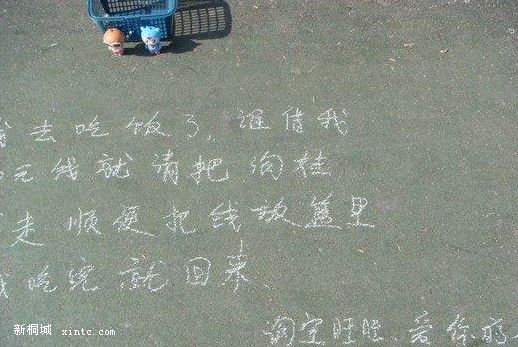 去吃饭了,谁借我
元钱就请把淘娃
走 顺便把钱放篮里
吃完就回来
淘宝旺旺、爱你
新桐城 xintc.com